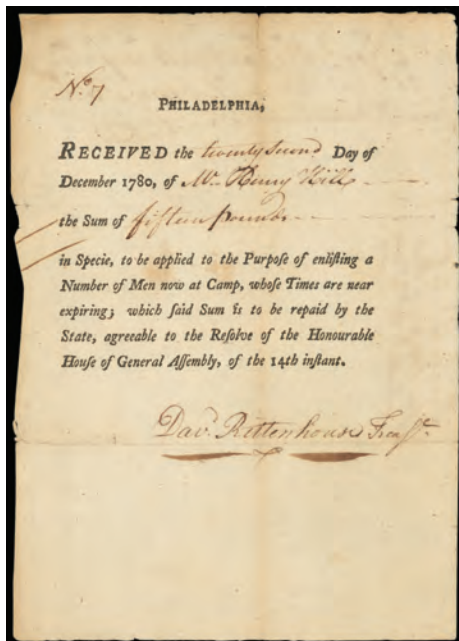 No. 7
PHILADELPHIA,
RECEIVED the twenty second Day of
December 1780, of Mr. Henry Hill
the Sum of fifteen pounds
in Specie, to be applied to the Purpose of enlisting a
Number of Men now at Camp, whose Times are near
expiring; which said Sum is to be repaid by the
State, agreeable to the Resolve of the Honourable
House of General Assembly, of the 14th instant.
Davd. Rittenhouse Treasr.